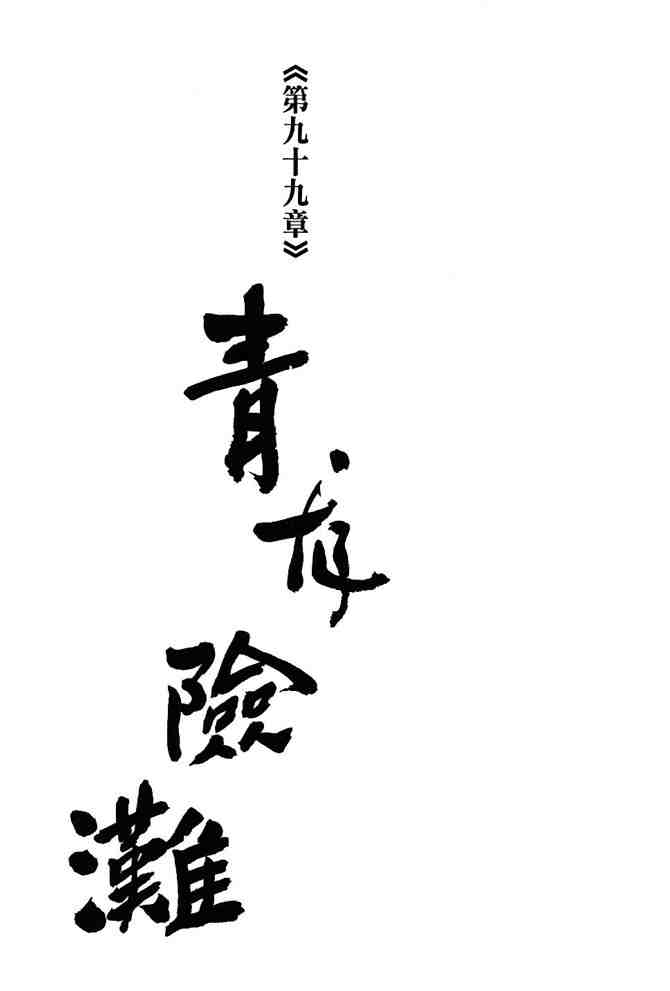 《第九十九章》
青險灘